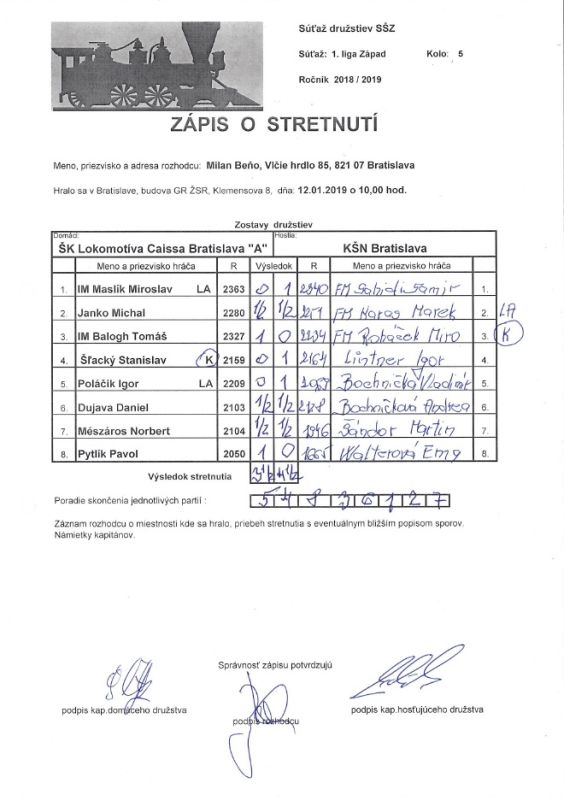 Súťaž družstiev SŠZ
Súťaž: 1. liga Západ Kolo: 5
Ročník 2018 / 2019
ZÁPIS O STRETNUTÍ
Meno, priezvisko a adresa rozhodcu: Milan Beňo, Vlčie hrdlo 85, 821 07 Bratislava
Hralo sa v Bratislave, budova GR ŽSR, Klemensova 8, dňa: 12.01.2019 o 10,00 hod.
Zostavy družstiev
Domáci: Hostia:
ŠK Lokomotíva Caissa Bratislava "A" KŠN Bratislava
Meno a priezvisko hráča R Výsledok R Meno a priezvisko hráča
1. IM Maslík Miroslav LA 2363 0 1 2340 FM Samir 1.
2. Janko Michal 2280 1/2 1/2 FM Haras Marek 2. LA
3. IM Balogh Tomáš 2327 1 0 2234 FM Roháček Miro 3. K
4. Šľacký Stanislav K 2159 0 1 2164 Lintner Igor 4.
5. Poláčik Igor LA 2209 0 1 Bochnička Vladimír 5.
6. Dujava Daniel 2103 1/2 1/2 Bochničková Andrea 6.
7. Mészáros Norbert 2104 1/2 1/2 1946 Sándor Martin 7.
8. Pytlik Pavol 2050 1 0 Walterová Emy 8.
Výsledok stretnutia 3 1/2 4 1/2
Poradie skončenia jednotlivých partií : 5 4 8 3 6 1 2 7
Záznam rozhodcu o miestnosti kde sa hralo, priebeh stretnutia s eventuálnym bližším popisom sporov.
Námietky kapitánov.
Správnosť zápisu potvrdzujú
podpis kap.domáceho družstva podpis rozhodcu podpis kap.hosťujúceho družstva